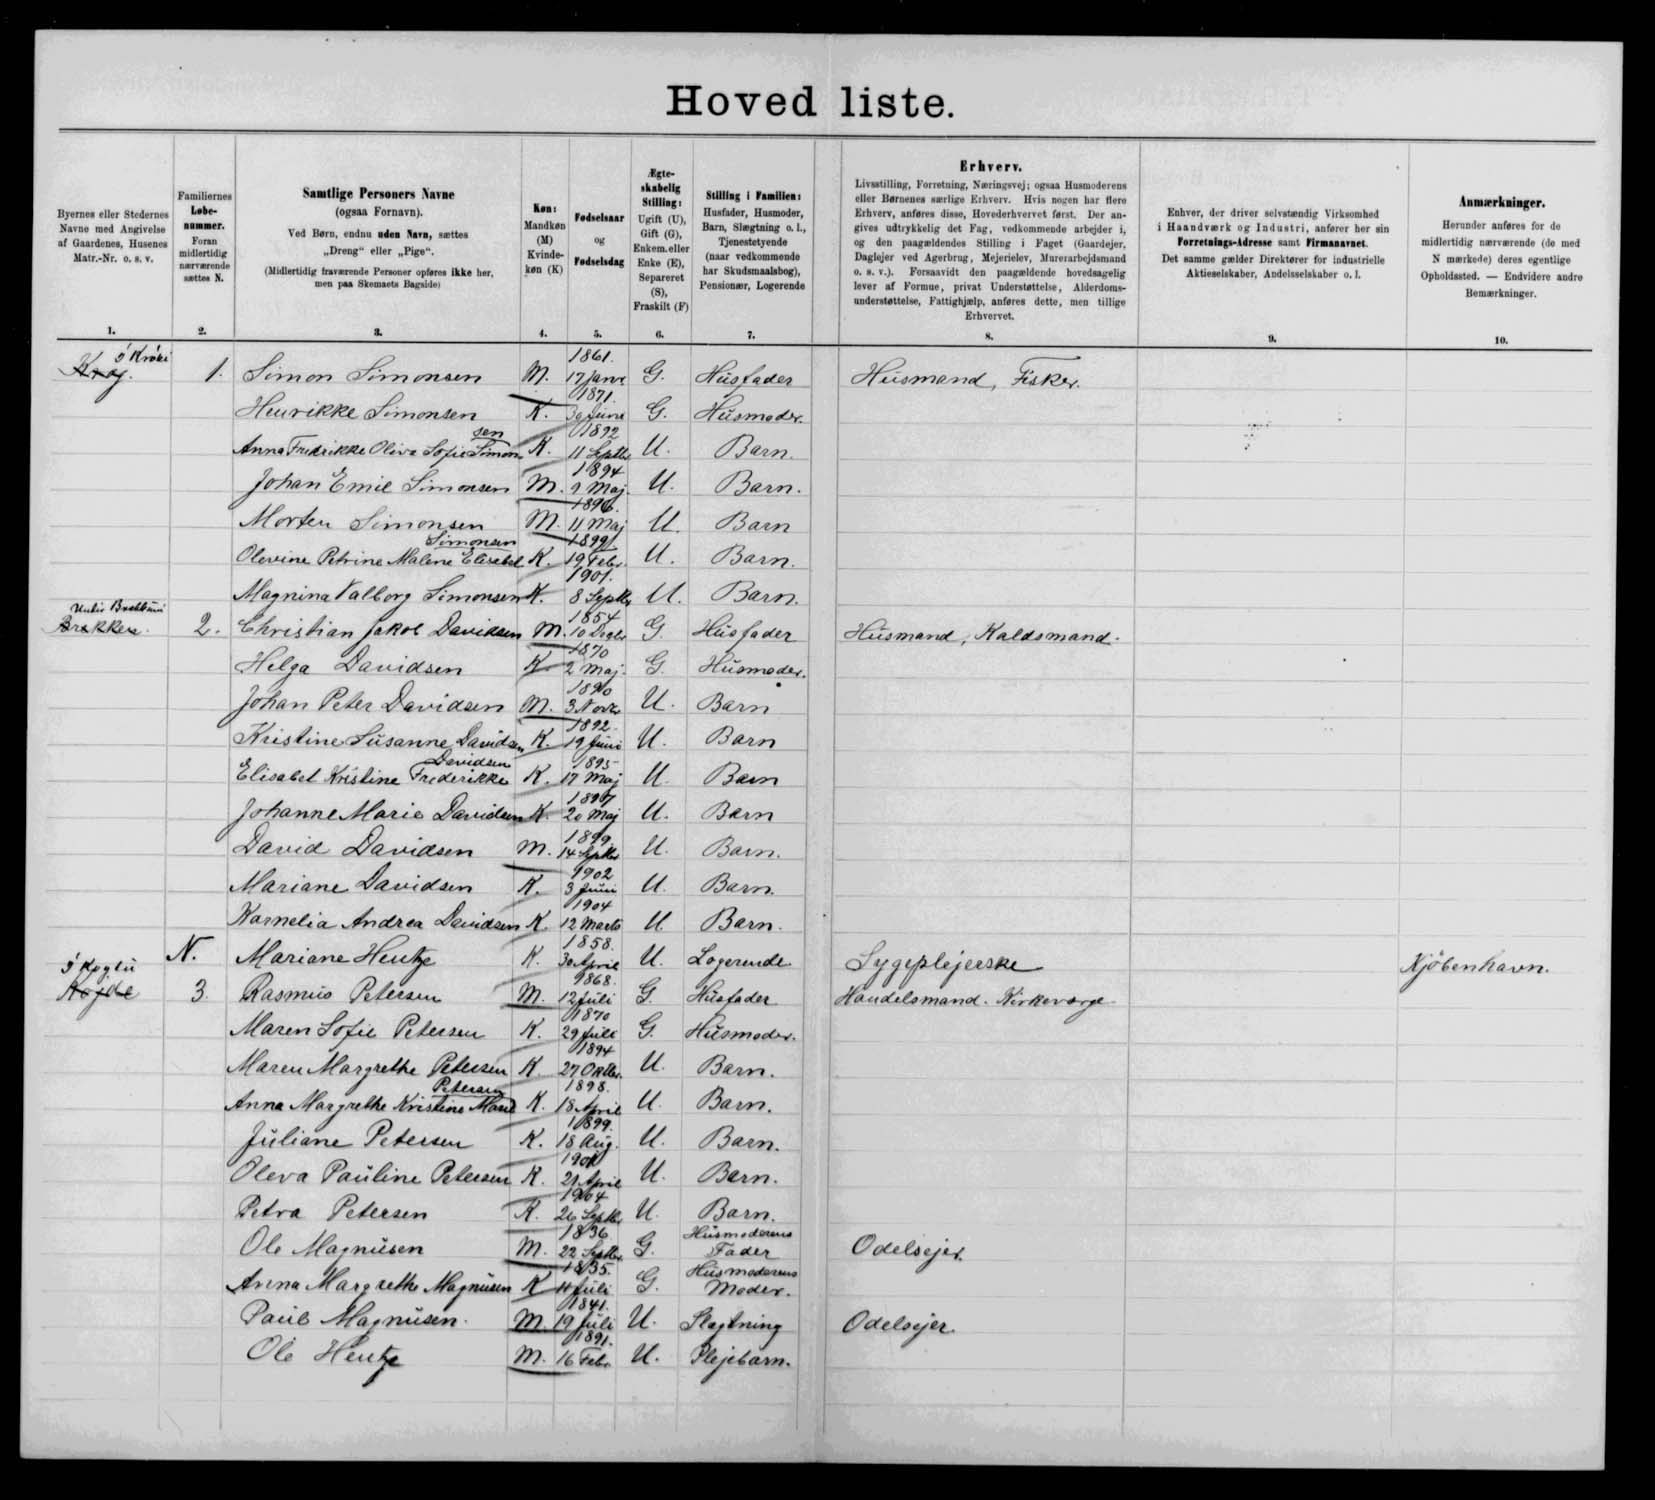 Hoved liste.
Byernes eller Stedernes
Navne med Angivelse
af Gaardenes, Husenes
Matr.-Nr. o. s. v.
1.
Familiernes
Løbe-
nummer.
Foran
midlertidig
nærværende
sættes N.
2.
Samtlige Personers Navne
(ogsaa Fornavn).
Ved Børn, endnu uden Navn, sættes
„Dreng“ eller „Pige“.
(Midlertidig fraværende Personer opføres ikke her,
men paa Skemaets Bagside)
3.
Køn:
Mandkøn
(M)
Kvinde-
køn (K)
4.
Fødselsaar
og
Fødselsdag
5.
Ægte-
skabelig
Stilling:
Ugift (U),
Gift (G),
Enkem.eller
Enke (E),
Separeret
(S),
Fraskilt (F)
6.
Stilling i Familien:
Husfader, Husmoder,
Barn, Slægtning o. l.,
Tjenestetyende
(naar vedkommende
har Skudsmaalsbog),
Pensionær, Logerende
7.
Erhverv.
Livsstilling, Forretning, Næringsvej; ogsaa Husmoderens
eller Børnenes særlige Erhverv. Hvis nogen har flere
Erhverv, anføres disse, Hovederhvervet først. Der an-
gives udtrykkelig det Fag, vedkommende arbejder i,
og den paagældendes Stilling i Faget (Gaardejer,
Daglejer ved Agerbrug, Mejerielev, Murerarbejdsmand
o. s. v.). Forsaavidt den paagældende hovedsagelig
lever af Formue, privat Understøttelse, Alderdoms-
understøttelse, Fattighjælp, anføres dette, men tillige
Erhvervet.
8.
Enhver, der driver selvstændig Virksomhed
i Haandværk og Industri, anfører her sin
Forretnings-Adresse samt Firmanavnet.
Det samme gælder Direktører for industrielle
Aktieselskaber, Andelsselskaber o. l.
9.
Anmærkninger.
Herunder anføres for de
midlertidig nærværende (de med
N mærkede) deres egentlige
Opholdssted. — Endvidere andre
Bemærkninger.
10.
í Króki 1861.
1. Simon Simonsen M. 17 Janr G. Husfader Husmand, Fisker.
1871.
Henrikke Simonsen K. 30 Juni G. Husmoder.
sen 1892
Anna Fredrikke Oliva Sofie Simon K. 11 Septbr U. Barn.
1894
Johan Emil Simonsen M. 9 Maj. U. Barn.
1896.
Morten Simonsen M. 11 Maj U. Barn
Simonsen 1899
Olevine Petrine Malene Elisabet K. 19 Febr. U. Barn.
1901.
Magnina Valborg Simonsen K. 8 Septbr U. Barn.
1854
Brekken. 2. Christian Jakob Davidsen M. 10 Decbr G. Husfader Husmand, Kaldsmand.
1870
Helga Davidsen K. 2 Maj. G. Husmoder.
1890
Johan Peter Davidsen M. 3 Novbr U. Barn
1892.
Kristine Susanne Davidsen K. 19 Juni U. Barn
Davidsen 1895
Elisabet Kristine Frederikke K. 17 Maj U. Barn
1897
Johanne Marie Davidsen K. 20 Maj U. Barn
1899
David Davidsen M. 14 Septbr U. Barn.
1902
Mariane Davidsen K. 3 Juni U. Barn.
1904
Kornelia Andrea Davidsen K. 12 Marts U Barn.
1858.
N. Mariane Hentze K. 30 April U. Logerende Sygeplejerske Kjöbenhavn.
1868.
3. Rasmus Petersen M. 12 Juli G. Husfader Handelsmand. Kirkeværge
1870
Maren Sofie Petersen K. 29 Juli G. Husmoder.
1894
Maren Margrethe Petersen K 27 Oktbr. U. Barn.
Petersen 1898.
Anna Margrethe Kristine Marie K. 18 April U. Barn.
1899.
Juliane Petersen K. 18 Aug. U. Barn.
1901
Oleva Pauline Petersen K. 21 April U. Barn.
1904
Petra Petersen K. 26 Septbr U. Barn.
1836 Husmoderens
Ole Magnusen M. 22 Septbr. G. Fader Odelsejer.
1835. Husmoderens
Anna Margrethe Magnusen K 4 Juli G. Moder.
1841.
Paul Magnusen. M. 19 Juli U. Slægtning Odelsejer.
1891.
Ole Hentze M. 16 Febr U. Plejebarn.